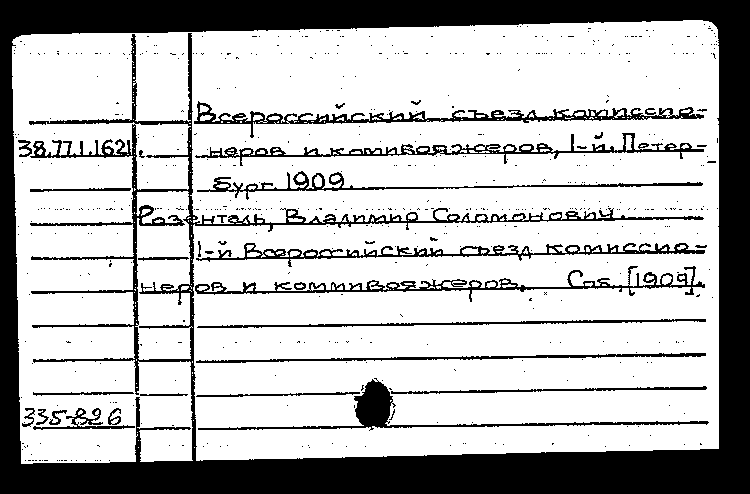 Всероссийский съезд комиссио-
38.77.1.1621. неров и коммивояжеров, 1-й. Петер-
бург. 1909.
Розенталь, Владимир Соломонович.
1-й Всероссийский съезд комиссио-
неров и коммивояжеров. Спб., [1909].
335-826